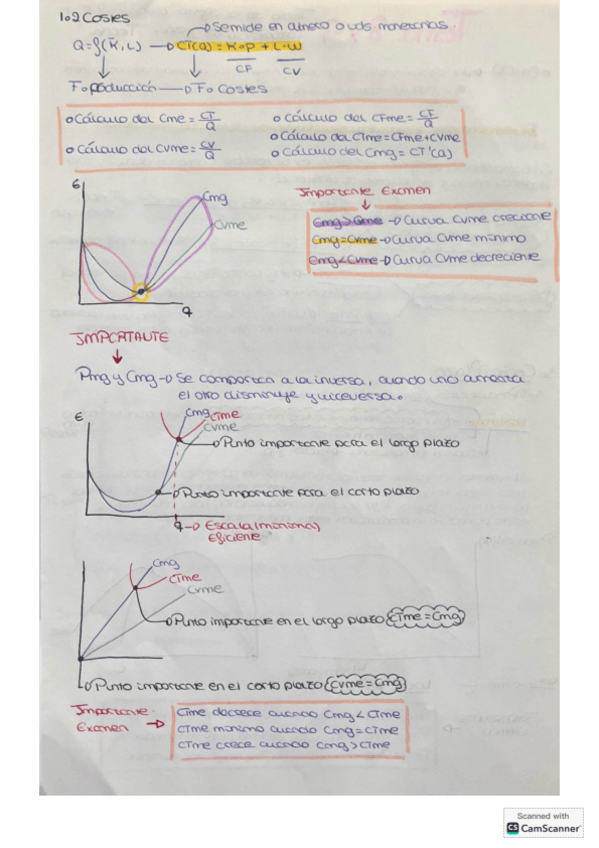 1.2 Costes
Se mide en dinero o uds. monetarias.
Q=f(K,L) → CT(Q) = K·P + L·W
CF
CV
Fº producción → Fº Costes
Cálculo del Cme = CT/Q
Cálculo del CFme = CF/Q
Cálculo del CTme = CFme + CVme
Cálculo del CVme = CV/Q
Cálculo del Cmg = CT'(Q)
€
Cmg
CVme
q
Importante Examen
Cmg>CVme → Curva CVme creciente
Cmg=CVme → Curva CVme mínimo
Cmg<CVme → Curva CVme decreciente
IMPORTANTE
Pmg y Cmg → Se comportan a la inversa, cuando uno aumenta
el otro disminuye y viceversa.
€
Cmg CTme
CVme
Punto importante para el largo plazo
Punto importante para el corto plazo
q → Escala (mínima)
Eficiente
Cmg
CTme
CVme
Punto importante en el largo plazo (CTme=Cmg)
Punto importante en el corto plazo (CVme=Cmg)
Importante
Examen →
CTme decrece cuando Cmg < CTme
CTme mínimo cuando Cmg = CTme
CTme crece cuando Cmg > CTme
Scanned with
CS CamScanner